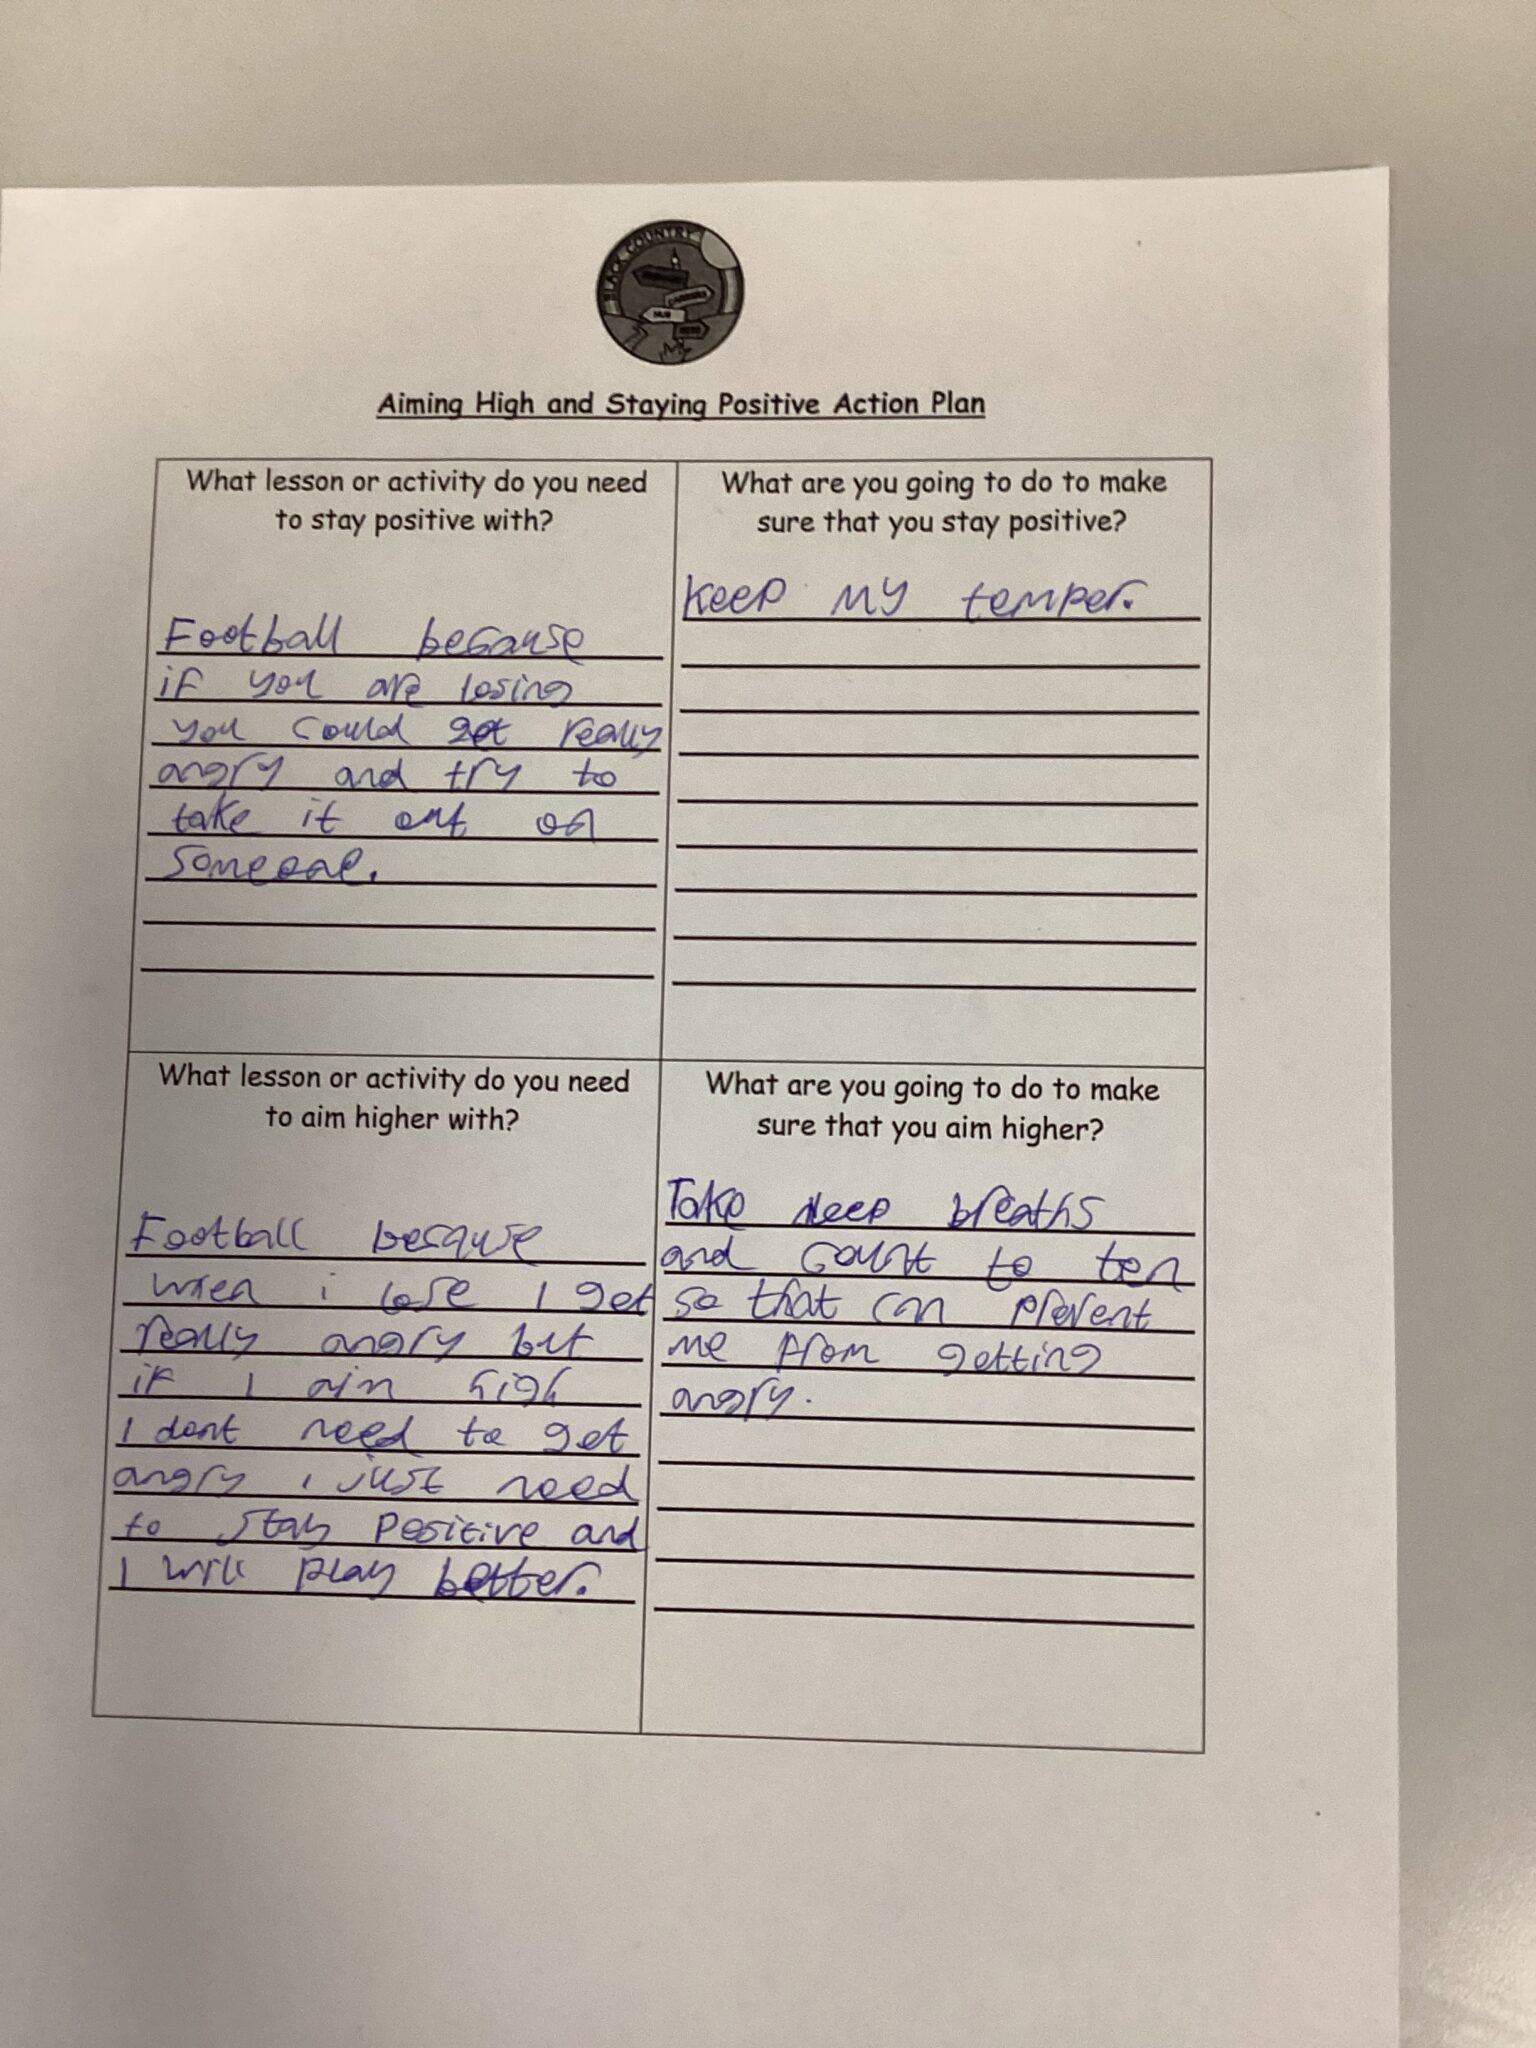 BLACK COUNTRY
Aiming High and Staying Positive Action Plan
What lesson or activity do you need
to stay positive with?
Football because
if you are losing
you could get really
angry and try to
take it out on
someone.
What are you going to do to make
sure that you stay positive?
keep my temper.
What lesson or activity do you need
to aim higher with?
Football because
when i lose I get
really angry but
if I aim high
I dont need to get
angry i just need
to stay positive and
I will play better.
What are you going to do to make
sure that you aim higher?
Take deep breaths
and count to ten
so that can prevent
me from getting
angry.